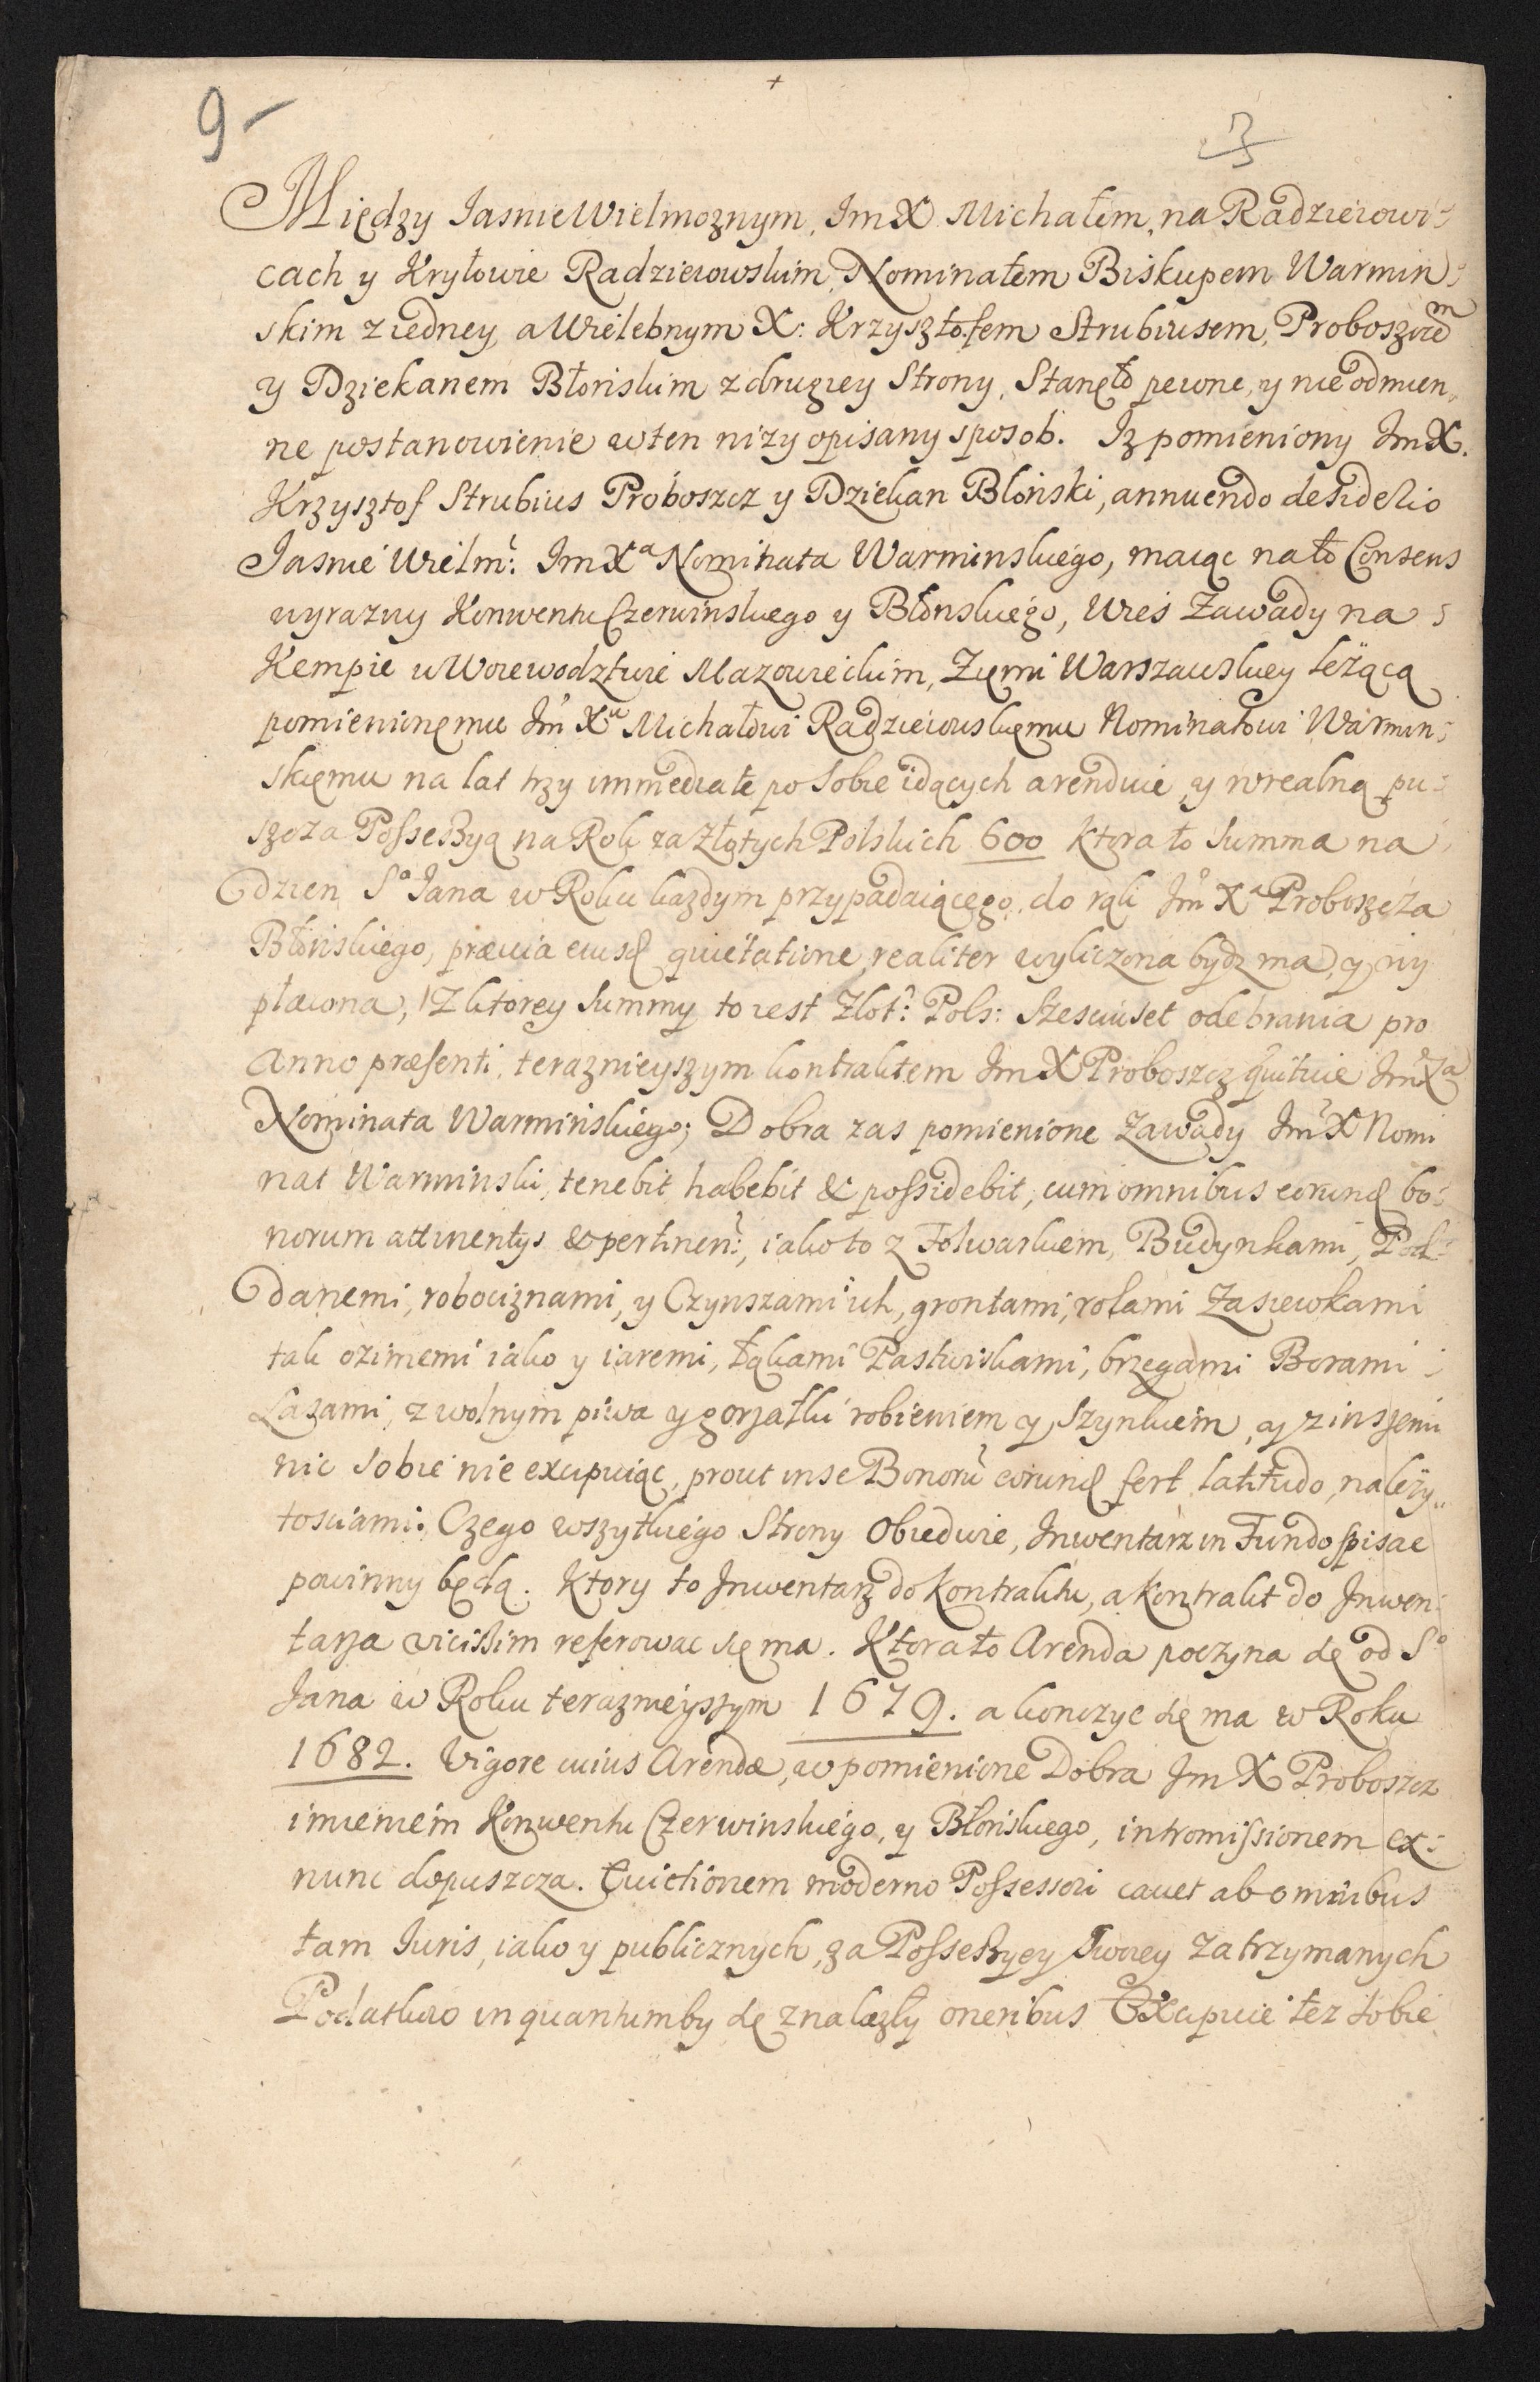 +
9-
3
Między Jasnie Wielmoznym, Jm X Michałem, na Radzieiowi-
cach y Kryłowie Radzieiowskim, Nominatem Biskupem Warmin-
skim z iedney, a Wielebnym X: Krzysztofem Strubiusem, Proboszczem
y Dziekanem Błońskim z drugiey Strony, Stanęło pewne, y nieodmien-
ne postanowienie w ten nizy opisany sposob. Iz pomieniony Jm X.
Krzysztof Strubius Proboszcz y Dziekan Bloński, annuendo desiderio
Jasnie Wielm: Jm Xa Nominata Warminskiego, maiąc na to Consens
wyrazny Konwentu Czerwinskiego y Błonskiego, Wies Zawady na
Kempie w Woiewodztwie Mazowieckim, Ziemi Warszawskiey leżącą
pomienionemu Jm Xu Michałowi Radzieiowskiemu Nominatowi Warmin-
skiemu na lat trzy immediate po sobie idących arenduie, y w realną pu-
szcza Possessyą na Rok za Złotych Polskich 600 ktora to Summa na
dzien So Jana w Roku kazdym przypadaiącego, do rąk Jm Xa Proboszcza
Błońskiego, prævia eiusd quietatione, realiter wyliczona bydz ma, y wy
płacona, Z ktorey Summy to iest Zlot: Pols: Szesciuset odebrania pro
Anno præsenti, terazniejszym kontraktem Jm X Proboszcz quituie Jm Xa
Nominata Warmińskiego; Dobra zas pomienione Zawady Jm X Nomi
nat Warminski, tenebit habebit & possidebit, cum omnibus eorund bo-
norum attinentys & pertinen:, iako to z Folwarkiem, Budynkami, Pod-
danemi, robociznami, y Czynszami ich, grontami, rolami Zasiewkami
tak ozimemi iako y iaremi, łąkami Pastwiskami, brzegami Borami
Lasami, z wolnym piwa y gorzałki robieniem y Szynkiem, y z inszemi
nic sobie nie excypuiąc, prout in se Bonorũ eorund fert latitudo, należy-
tosciami. Czego wszytkiego Strony Obiedwie, Inwentarz in Fundo spisac
powinny będą. Ktory to Inwentarz do Kontraktu, a Kontrakt do Inwen-
tarza vicissim referowac się ma. Ktora to Arenda poczyna się od So
Jana w Roku terazniejszym 1679. a konczyc się ma w Roku
1682. Vigore cuius Arendæ, w pomienione Dobra Jm X Proboszcz
imieniem Konwentu Czerwinskiego, y Błońskiego, intromissionem ex-
nunc dopuszcza. Evictionem moderno Possessori cavet ab omnibus
tam Juris, iako y publicznych, za Possessyey Swoiey Zatrzymanych
Podatkow in quantumby się znalazły oneribus Excypuie tez sobie